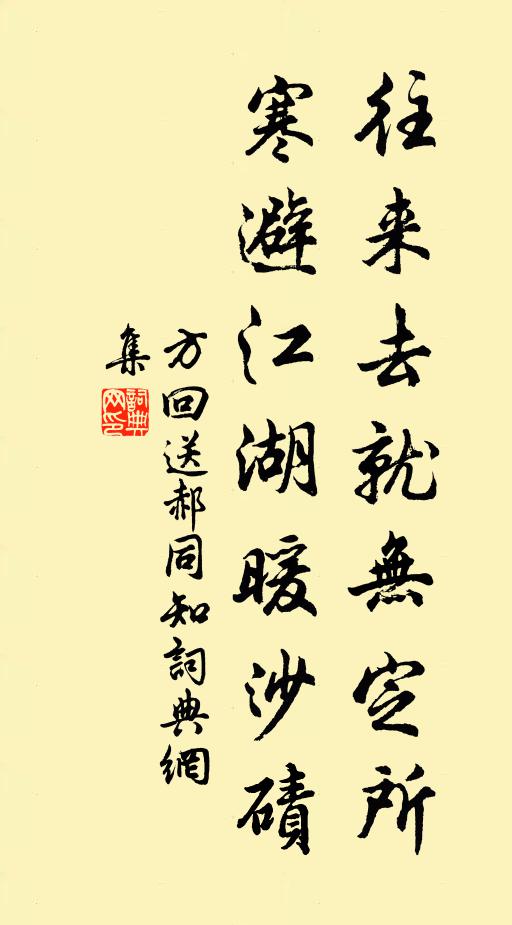 往来去就無定所
寒避江湖暖沙磧
方回送郝同知詞典網
集
詞典網印